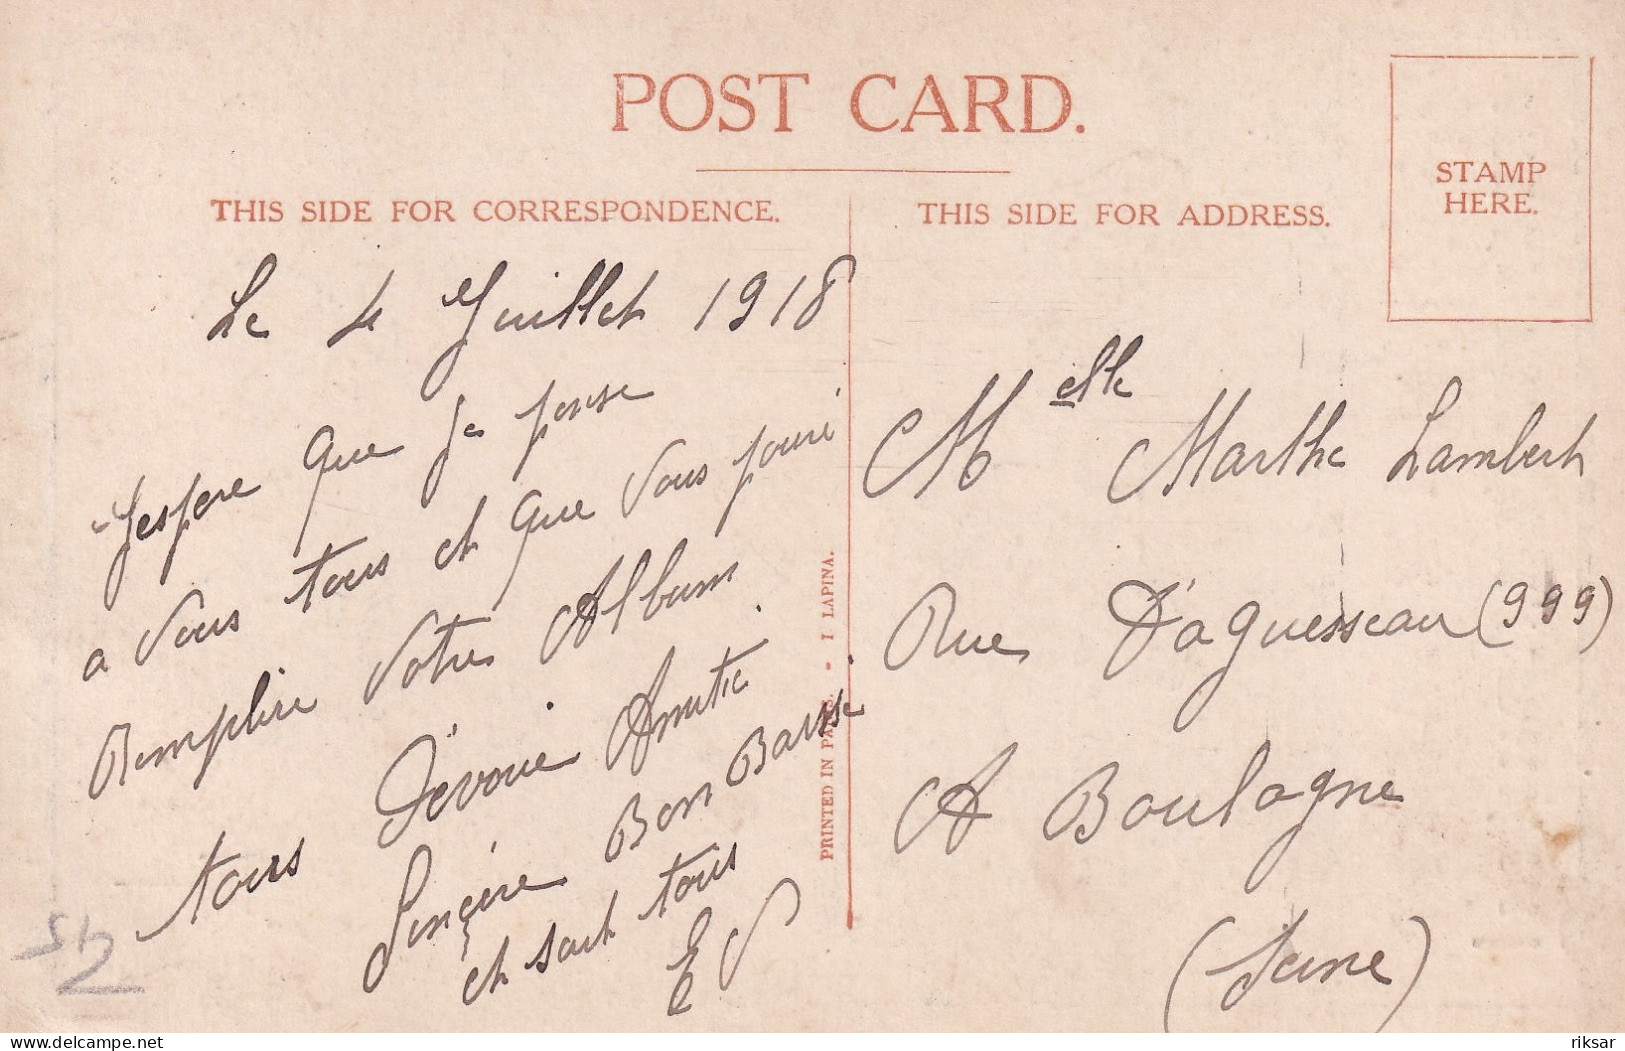 POST CARD.
STAMP
HERE.
THIS SIDE FOR CORRESPONDENCE.
THIS SIDE FOR ADDRESS.
Le 4 Juillet 1918
J'espere que je pense
a vous tous et que vous pouvé
Remplire votre Album
tous Dévoué Amitié
Sinçère Bon Baisse
et sout tous
PRINTED IN PARIS. - I LAPINA.
Melle Marthe Lambert
Rue D'aguesseau (999)
A Boulogne
(Seine)
riksar
delcampe.net